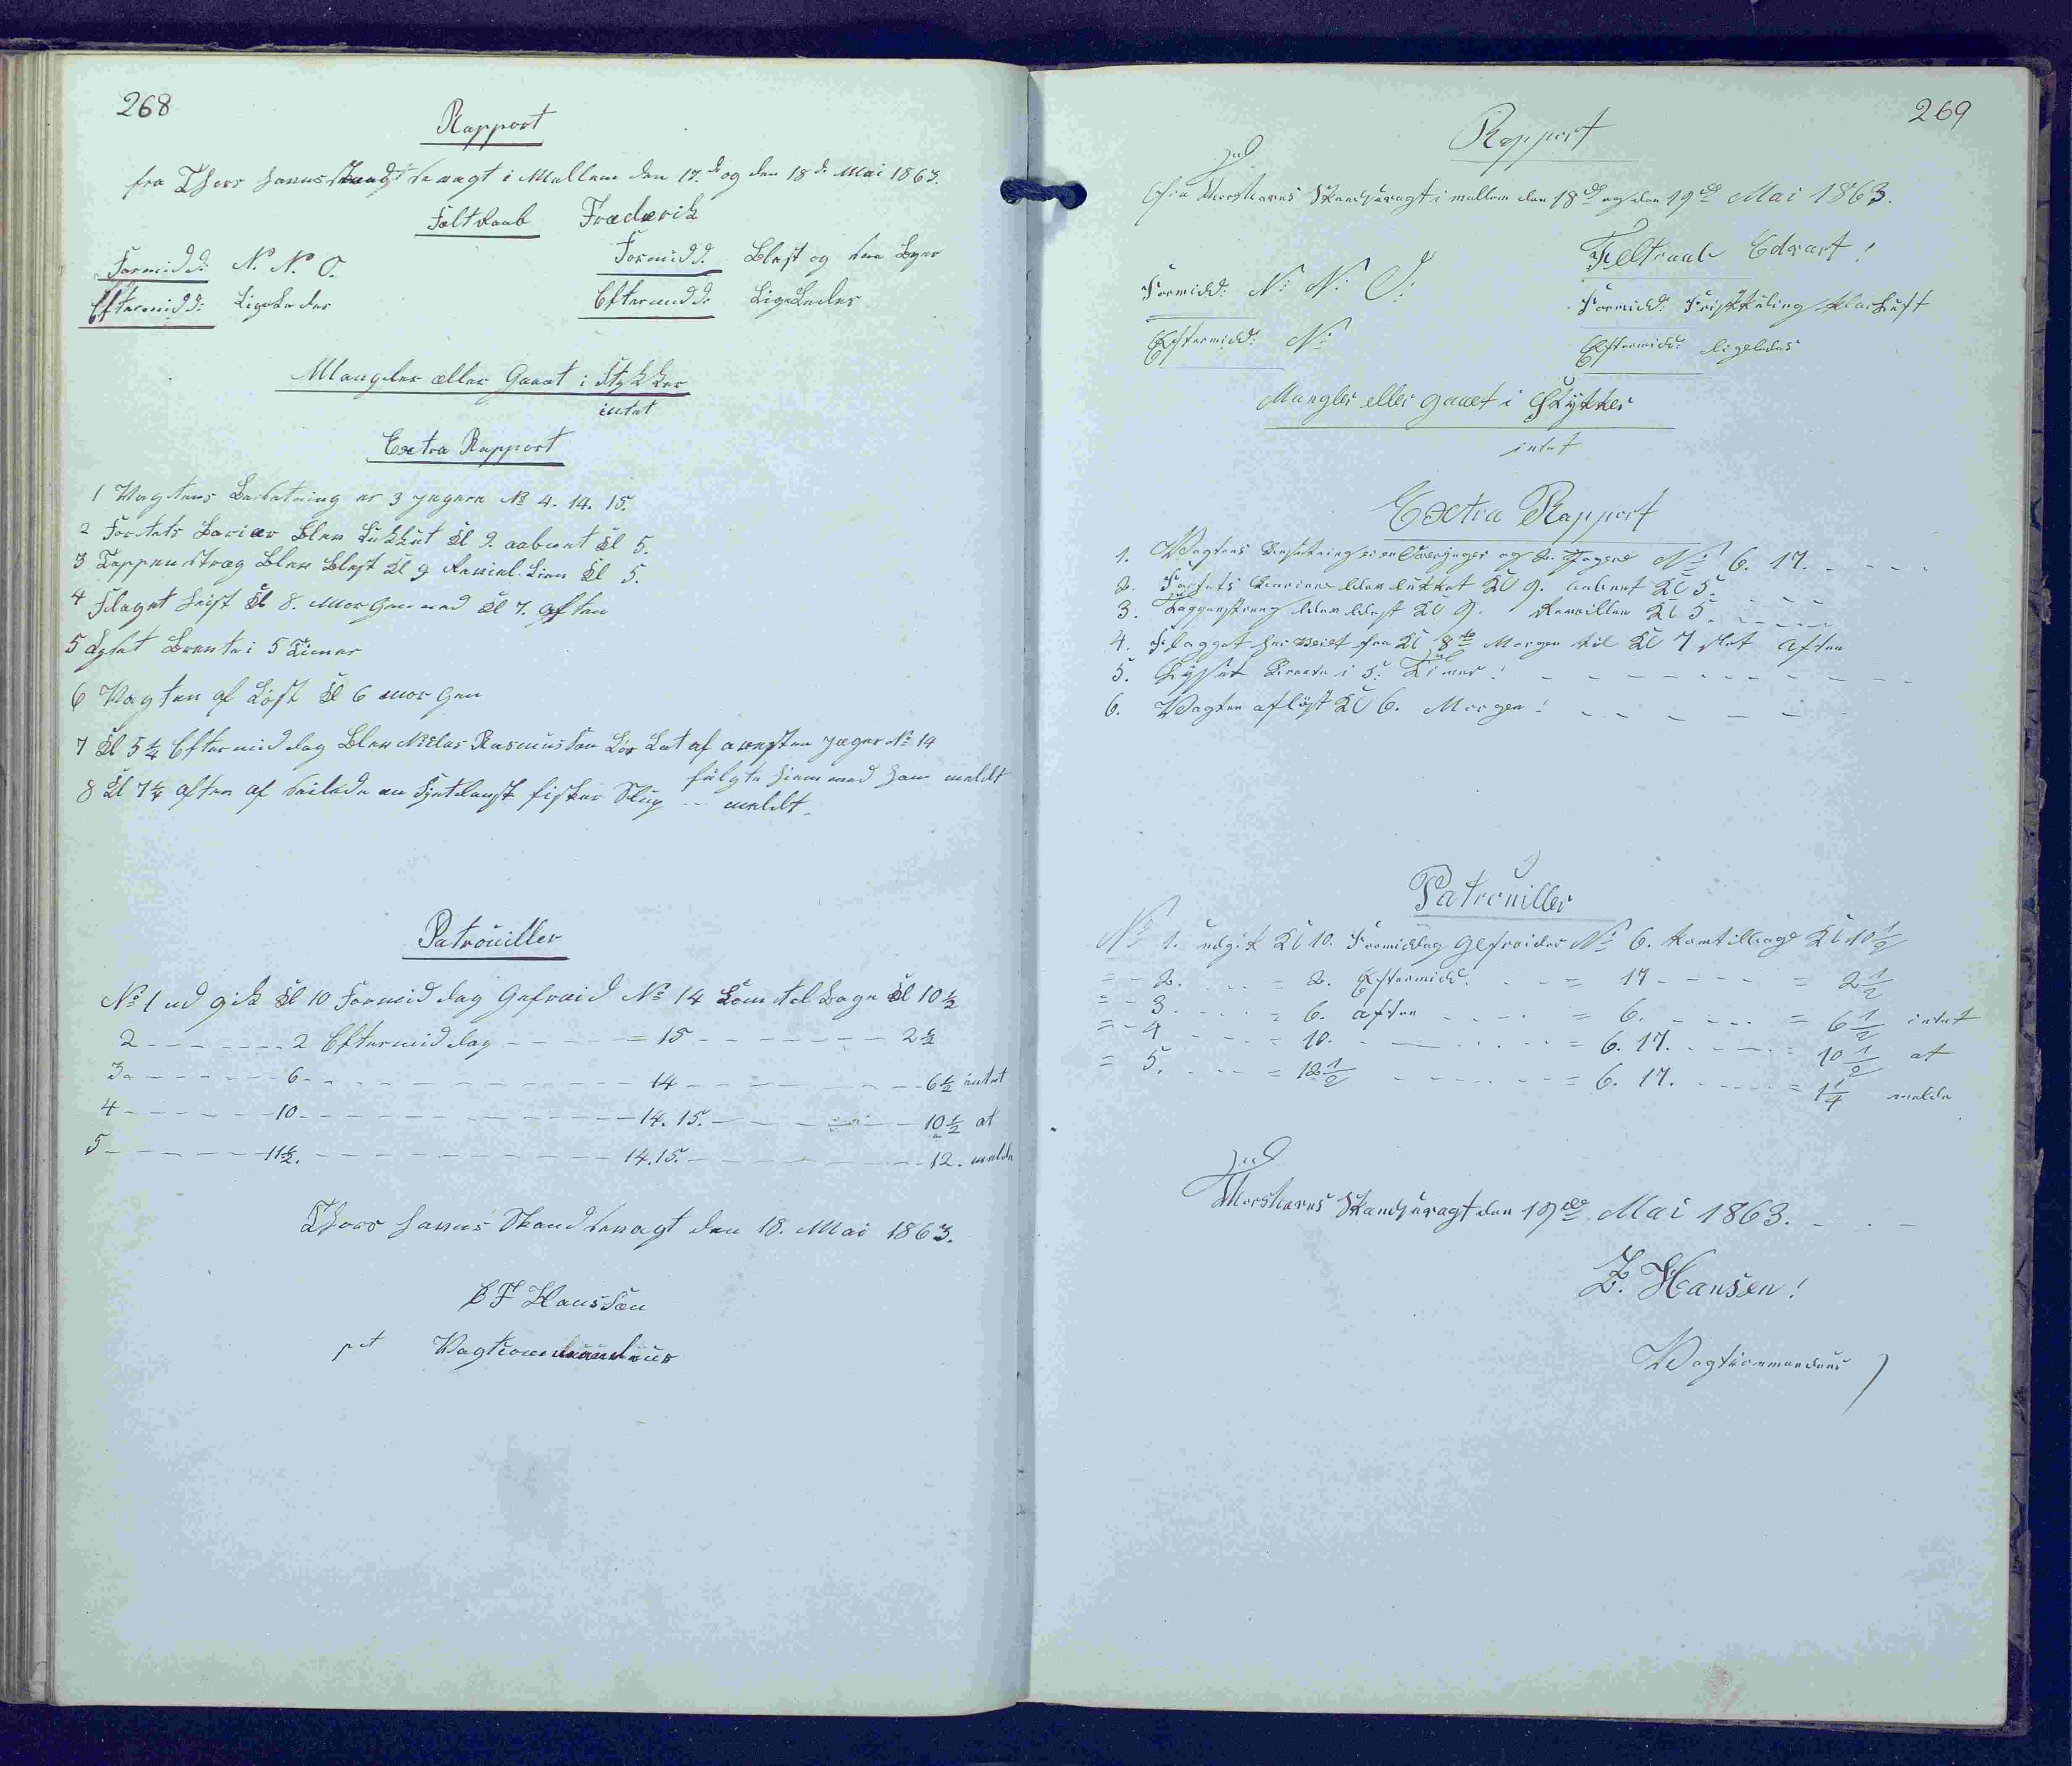 268
Rapport
fra Thors havns Skandsevagt i Mellem den 17.de og den 18de Mai 1863.
Feltraab Frederik
Formidd: N. N. O. Formidd: Blæst og sne Byer
Eftermidd: Ligeledes Eftermidd: Ligeledes
Mangler eller Gaaet i Stykker
intet
Extra Rapport
1 Vagtens Besetning er 3 jegere No 4. 14. 15.
2 Fortets Barier Blev Lukket Kl 9. aabnet Kl 5.
3 Tappenstræg Blev Blæst Kl 9 Revielen Kl 5.
4 Flaget heist Kl 8. Morgen ned Kl 7. aften
5 Lyset Brente i 5 Timer
6 Vagten af Løst Kl 6 morgen
7 Kl 5 1/4 Eftermiddag Blev Niclas Rasmussen Løs Lat af aresten jæger No 14
fulgte hiem med ham meldt
8 Kl 7 1/4 aften af seilede en fisker Slup -- meldt.
Patrouiller
No 1 ud gik Kl 10 Formid dag Gefreid No 14 kom tel bage Kl 10 1/2
2 - - - - - - - 2 Eftermid dag - - - - - = 15 - - - - - - - 2 1/2
3 - - - - - - 6 - - - - - - - - - - - 14 - - - - - - - - 6 1/2 intet
4 - - - - - - 10 - - - - - - - - - - - 14. 15. - - - - - - 10 1/2 at
5 - - - - - - 11 1/2. - - - - - - - - - - 14. 15. - - - - - - - 12. melde
Thors havns Skandsevagt den 18. Mai 1863.
Hanssen
pt Vagtcommandeur
269
Rapport
fra Thorshavns Skandsevagt i mellem den 18de og den 19de Mai 1863.
Feltraab Edvart!
Formidd: N: N: O: Formidd: Friskkuling klarluft
Eftermidd: N: Eftermidd: ligeledes
Mangler eller gaaet i Stykker
intet
Extra Rapport
1. Vagtens Besætning er en Overjæger og 2. Jægere No 6. 17. - - - -
2. Fortets Bariere blev lukket Kl 9. aabnet Kl 5. - - -
3. Tappenstreg blev blæst Kl 9. Reveillen Kl 5. - - - -
4. Flagget har veiet fra Kl 8te Morgen til Kl 7 slet Aften
5. Lyset Brænte i 5: Timer! - - - - - - - -
6. Vagten afløst Kl 6. Morgen! - - - - - -
Patrouiller
No 1. udgik Kl 10. Formiddag Gefreider No 6. kom tilbage Kl 10 1/2
= - 2. - - - = 2. Eftermidd: - - = 17 - - - - = 2 1/2
= - 3 - - - - = 6. aften - - - - = 6. - - - - = 6 1/2 intet
= - 4 - - - - = 10. - - - - - - = 6. 17. - - - - 10 1/2 at
= 5. - - - - = 12 1/2 - - - - - = 6. 17. - - - - = 1 1/4 melde
Thorshavns Skandsevagt den 19de Mai 1863. - - -
Z. Hansen!
Vagtcommandeur